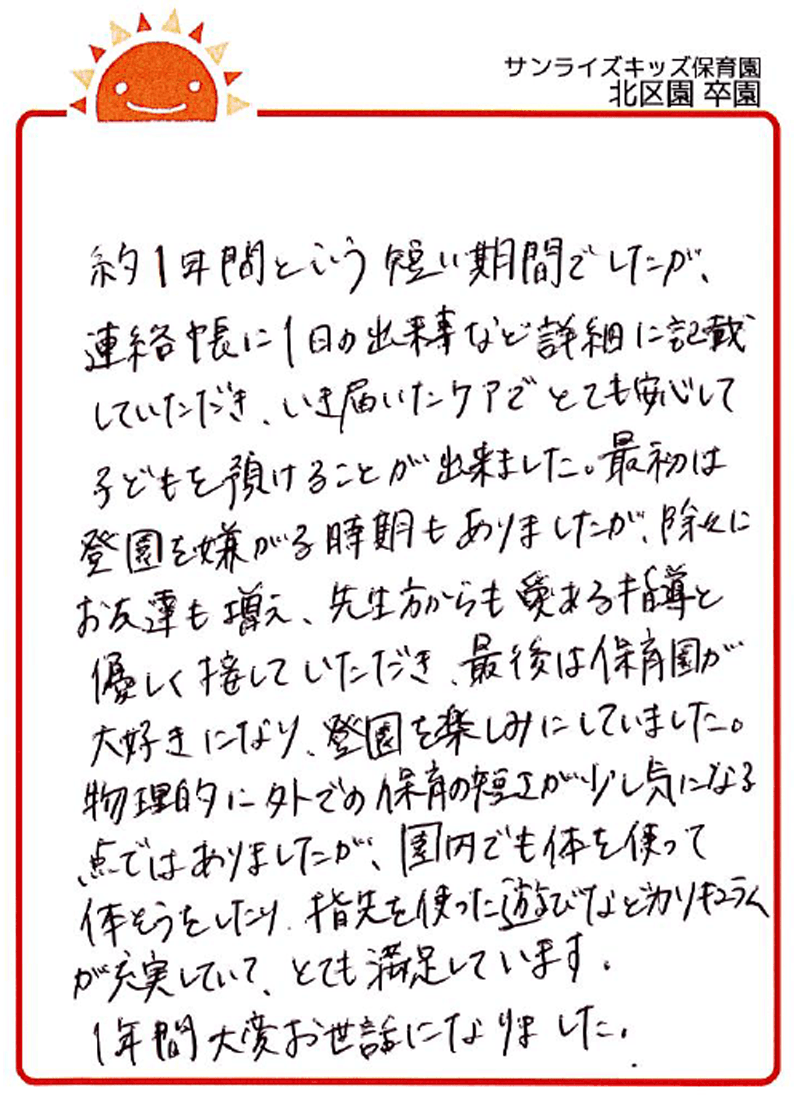 サンライズキッズ保育園
北区園 卒園
約1年間という短い期間でしたが、
連絡帳に1日の出来事など詳細に記載
していただき、いき届いたケアでとても安心して
子どもを預けることが出来ました。最初は
登園を嫌がる時期もありましたが、除々に
お友達も増え、先生方からも愛ある指導と
優しく接していただき、最後は保育園が
大好きになり、登園を楽しみにしていました。
物理的に外での保育の短さが少し気になる
点ではありましたが、園内でも体を使って
体そうをしたり、指先を使った遊びなどカリキュラム
が充実していて、とても満足しています。
1年間大変お世話になりました。